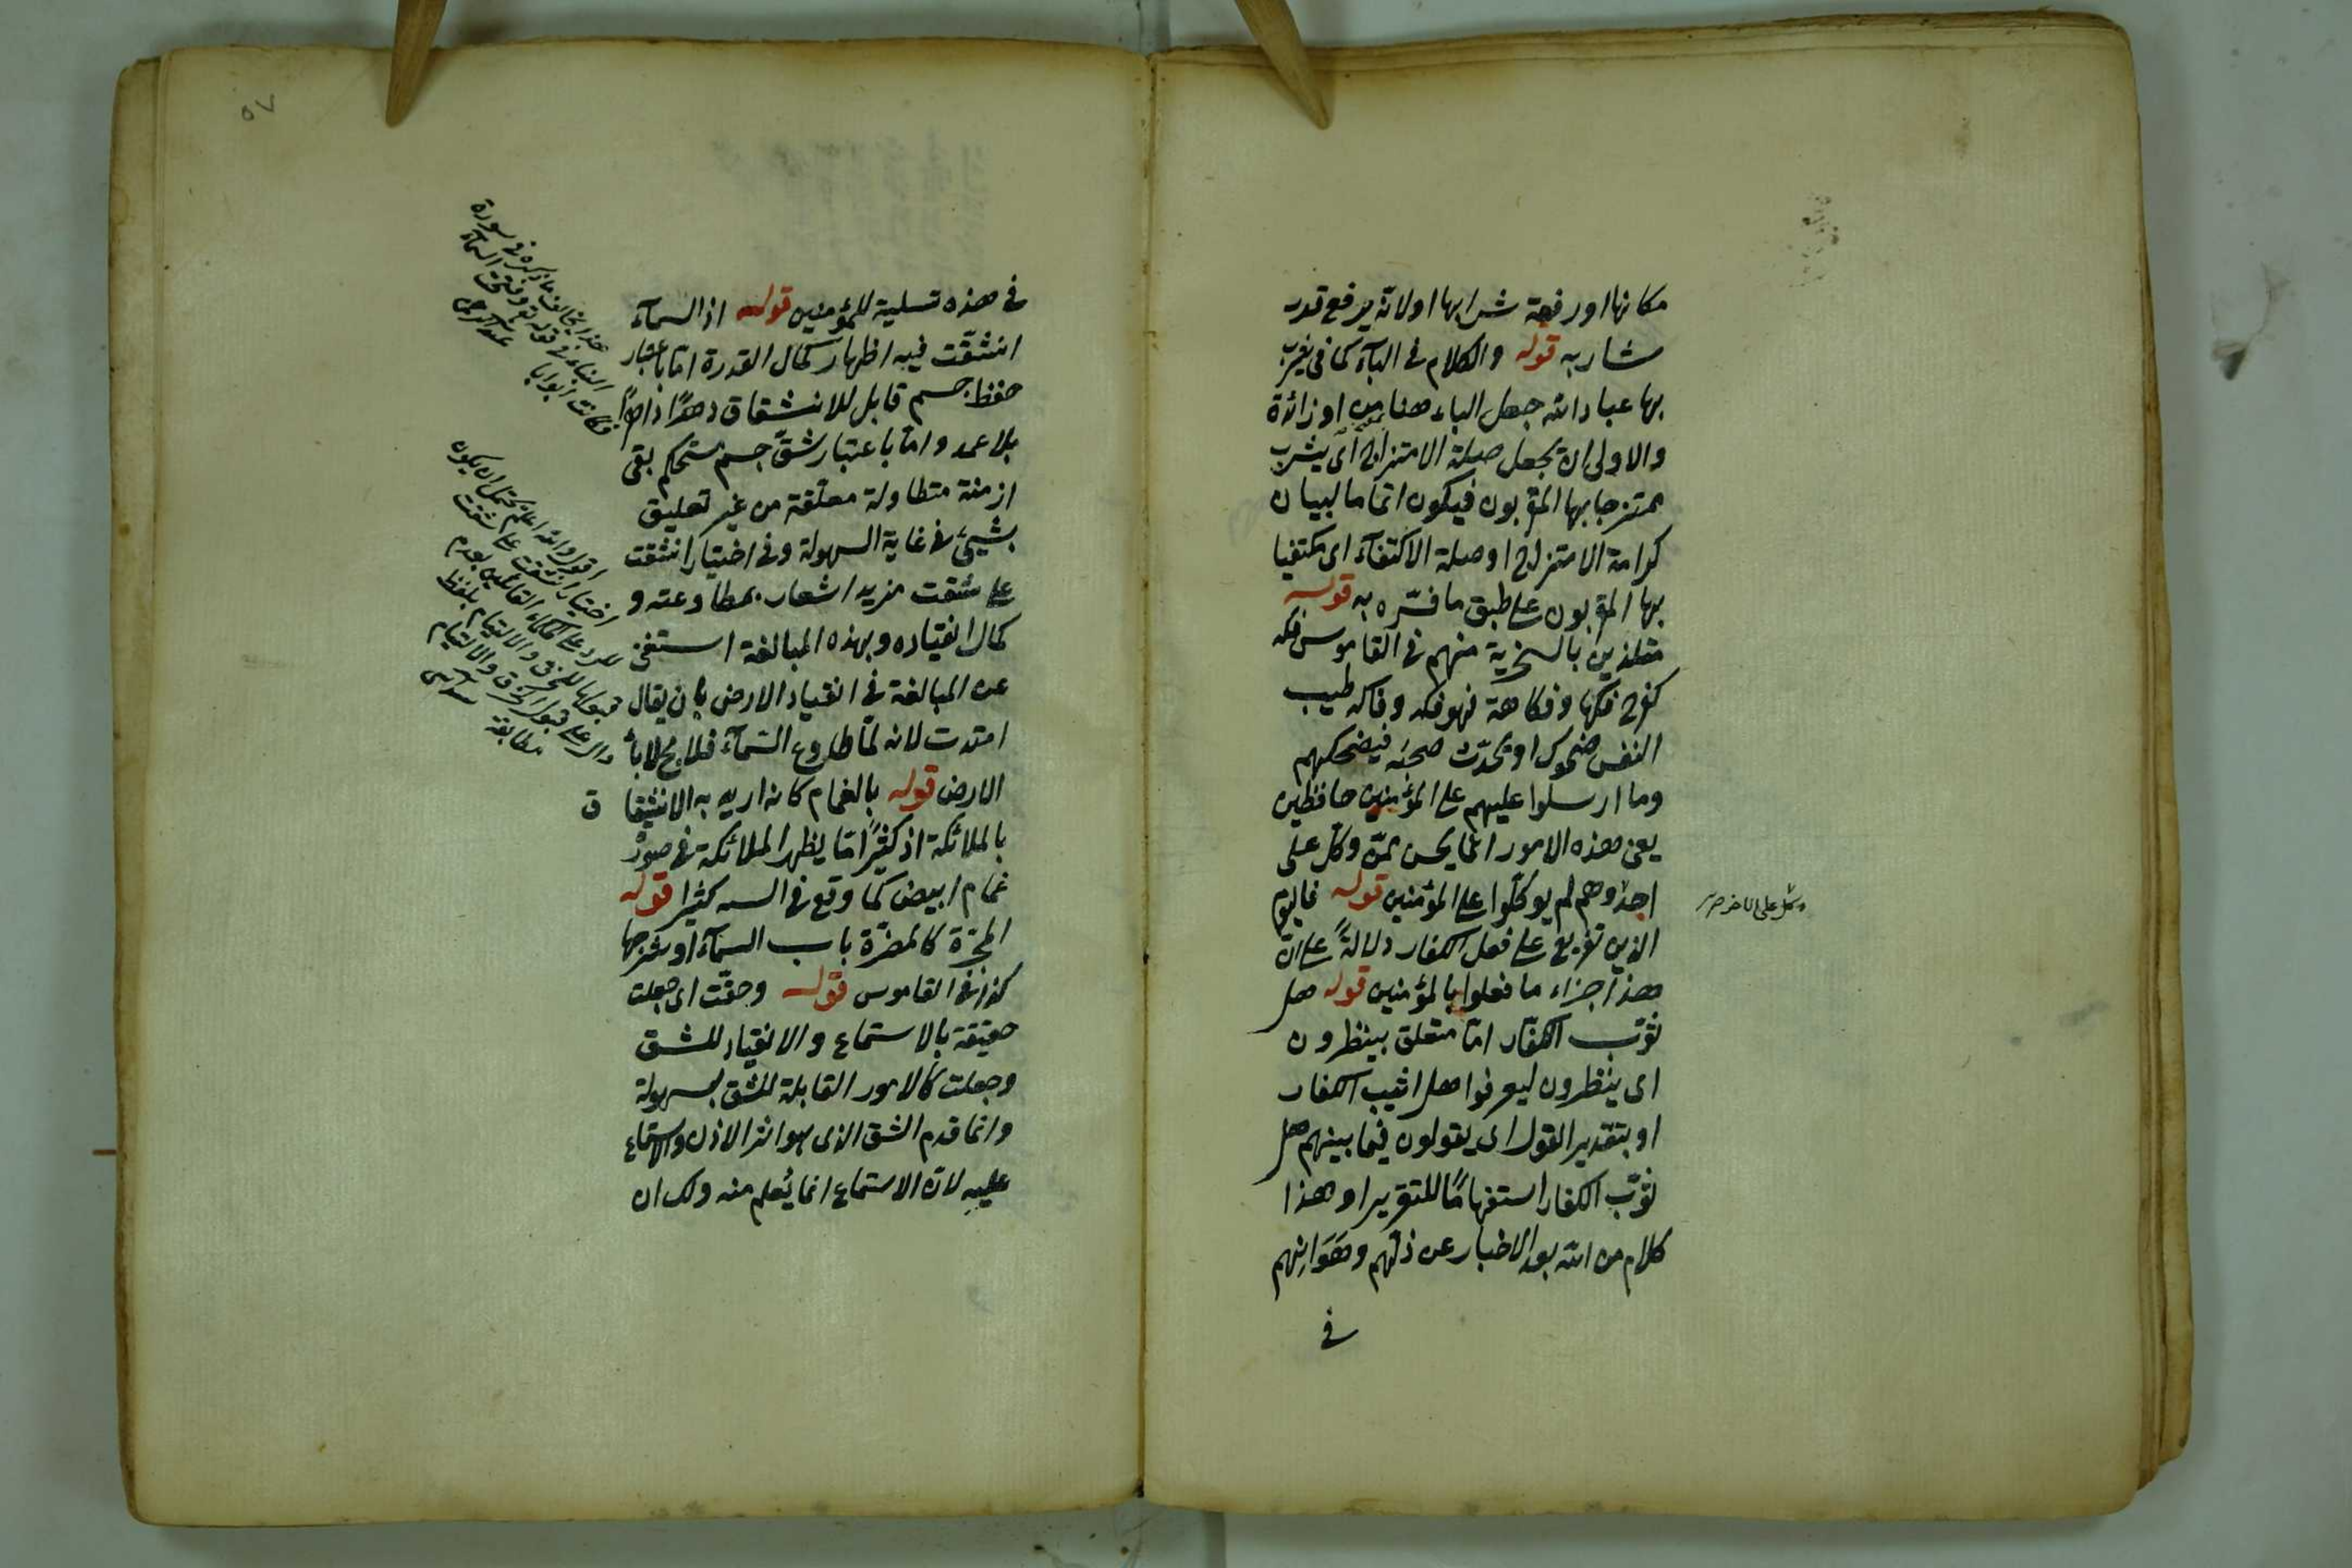 مكانها او رفعة شرابها او لانه يرفع قدر
شاربه قوله والكلام في الباء كما في يشرب
بها عباد الله جعل الباء هنا من او زائدة
والاولى ان يجعل صلة الامتزاج اى يشرب
ممتزجا بها المقربون فيكون اتماما لبيان
كرامة الامتزاج او صلة الاكتفاء اى مكتفيا
بها المقربون على طبق ما فسره به قوله
متلذذين بالسخرية منهم في القاموس فكه
كفرح فكها وفكاهة فهو فكه وفاكه طيب
النفس ضحوك او يحدث صحبه فيضحكهم
وما ارسلوا عليهم على المؤمنين حافظين
يعنى هذه الامور انما يحسن ممن وكل على
احد وهم لم يوكلوا على المؤمنين قوله فاليوم
الذين تفريع على فعل الكفار دلالة على ان
هذا جزاء ما فعلوا بالمؤمنين قوله هل
ثوب الكفار اما متعلق بينظرون
اى ينظرون ليعرفوا هل اثيب الكفار
او بتقدير القول اى يقولون فيما بينهم هل
ثوب الكفار استفهاما للتقرير او هذا
كلام من الله بعد الاخبار عن ذلهم وهوانهم
في
٥٧
في هذه تسلية للمؤمنين قوله اذا السماء
انشقت فيه اظهار كمال القدرة اما باعتبار
حفظ جسم قابل للانشقاق دهرا
بلا عمد واما باعتبار شق جسم مستحكم بقى
ازمنة متطاولة معلقة من غير تعليق
بشيئ في غاية السهولة وفي اختيار انشقت
على شقت مزيد اشعار بمطاوعته و
كمال انقياده وبهذه المبالغة استغنى
عن المبالغة في انقياد الارض بان يقال
امتدت لانه لما طاوع السماء فلا
الارض قوله بالغمام كانه اريد به الانشقاق
بالملائكة اذ كثيرا ما يظهر الملائكة في صور
غمام ابيض كما وقع في السير كثيرا قوله
المجرة كالمضرة باب السماء او شرجها
كذا في القاموس قوله وحقت اى جعلت
حقيقة بالاستماع والانقياد للشق
وجعلت كالامور القابلة للشق بسهولة
وانما قدم الشق الذى هو اثر الاذن والاستماع
عليه لان الاستماع انما يعلم منه ولك ان
هذا يخالف ما ذكره في سورة
النباء في قوله تع وفتحت السماء
فكانت ابوابا
اقول والله اعلم يحتمل ان يكون
اختيار انشقت على شقت
للرد على الحكماء القائلين بعدم
قبولها للخرق والالتيام بلفظ
دال على قبول الخرق والالتيام
مطابقة